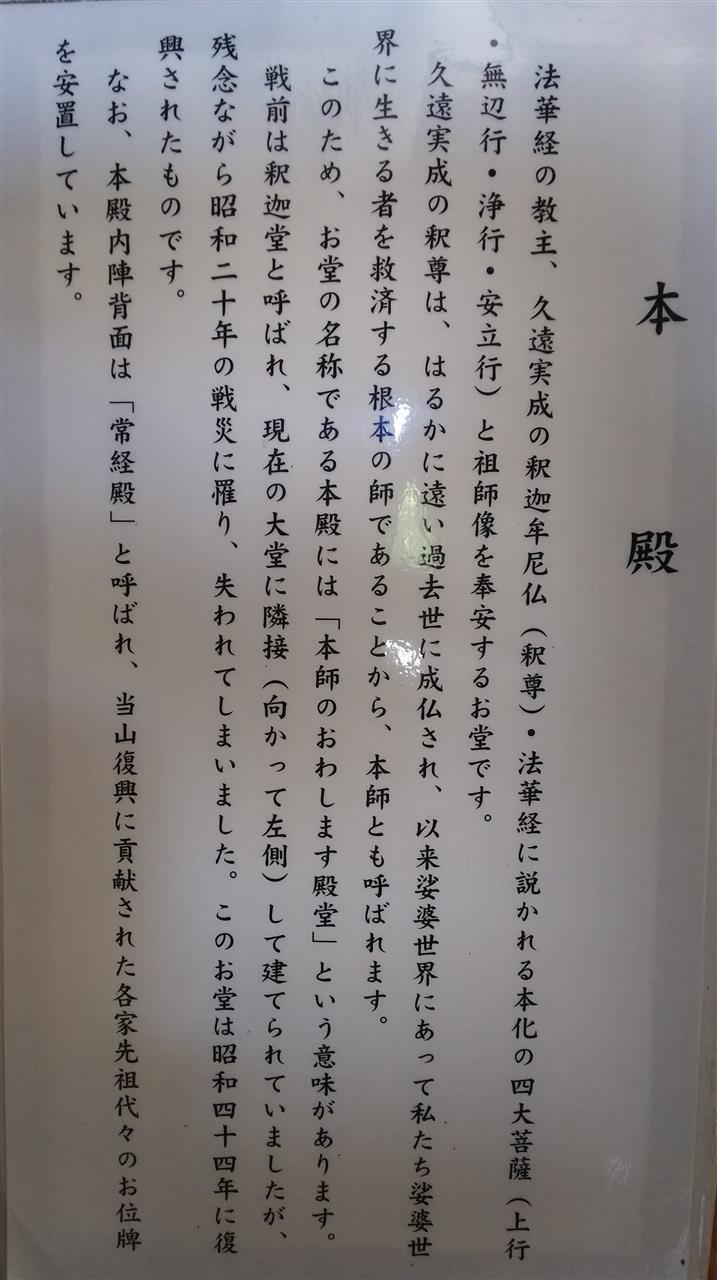 本殿
法華経の教主、久遠実成の釈迦牟尼仏（釈尊）・法華経に説かれる本化の四大菩薩（上行
・無辺行・浄行・安立行）と祖師像を奉安するお堂です。
久遠実成の釈尊は、はるかに遠い過去世に成仏され、以来娑婆世界にあって私たち娑婆世
界に生きる者を救済する根本の師であることから、本師とも呼ばれます。
このため、お堂の名称である本殿には「本師のおわします殿堂」という意味があります。
戦前は釈迦堂と呼ばれ、現在の大堂に隣接（向かって左側）して建てられていましたが、
残念ながら昭和二十年の戦災に罹り、失われてしまいました。このお堂は昭和四十四年に復
興されたものです。
なお、本殿内陣背面は「常経殿」と呼ばれ、当山復興に貢献された各家先祖代々のお位牌
を安置しています。